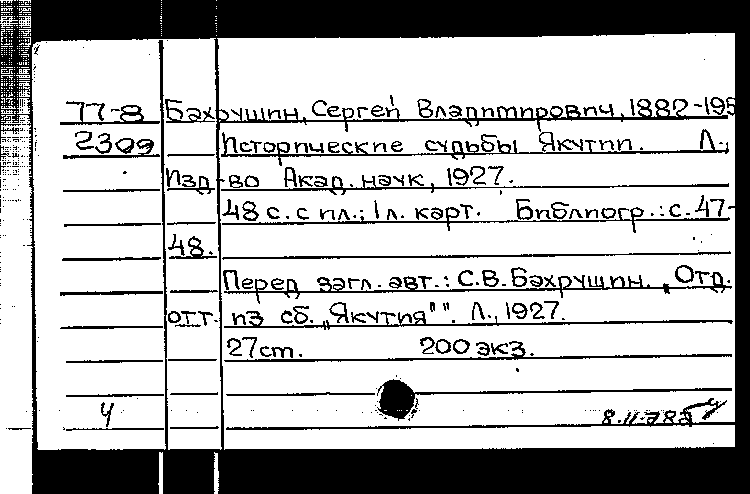 77-8 Бахрушин, Сергей Владимирович, 1882-195
2309 Исторические судьбы Якутии. Л.,
Изд-во Акад. наук, 1927.
48 с. с ил.; 1 л. карт. Библиогр.: с. 47-
48.
Перед загл. авт.: С.В. Бахрушин. „Отд.
отт. из сб. „Якутия"". Л., 1927.
27 см. 200 экз.
Ч